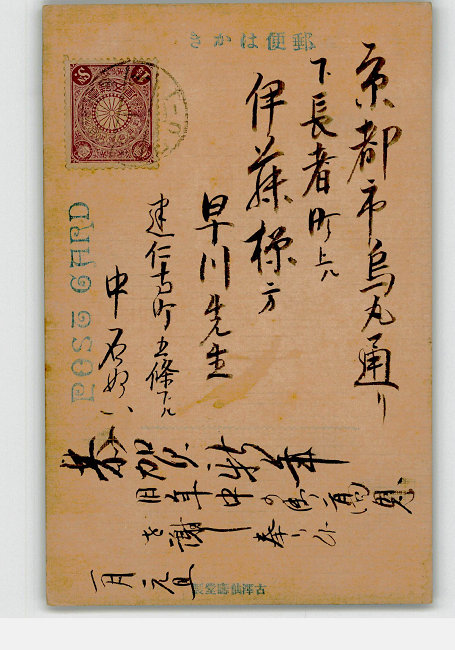 郵便はかき
京都市烏丸通り
下長者町上ル
伊藤様方
早川先生
建仁寺町五條下ル
中石
POST CARD
恭賀新年
旧年中の
を謝し奉り
一月元旦